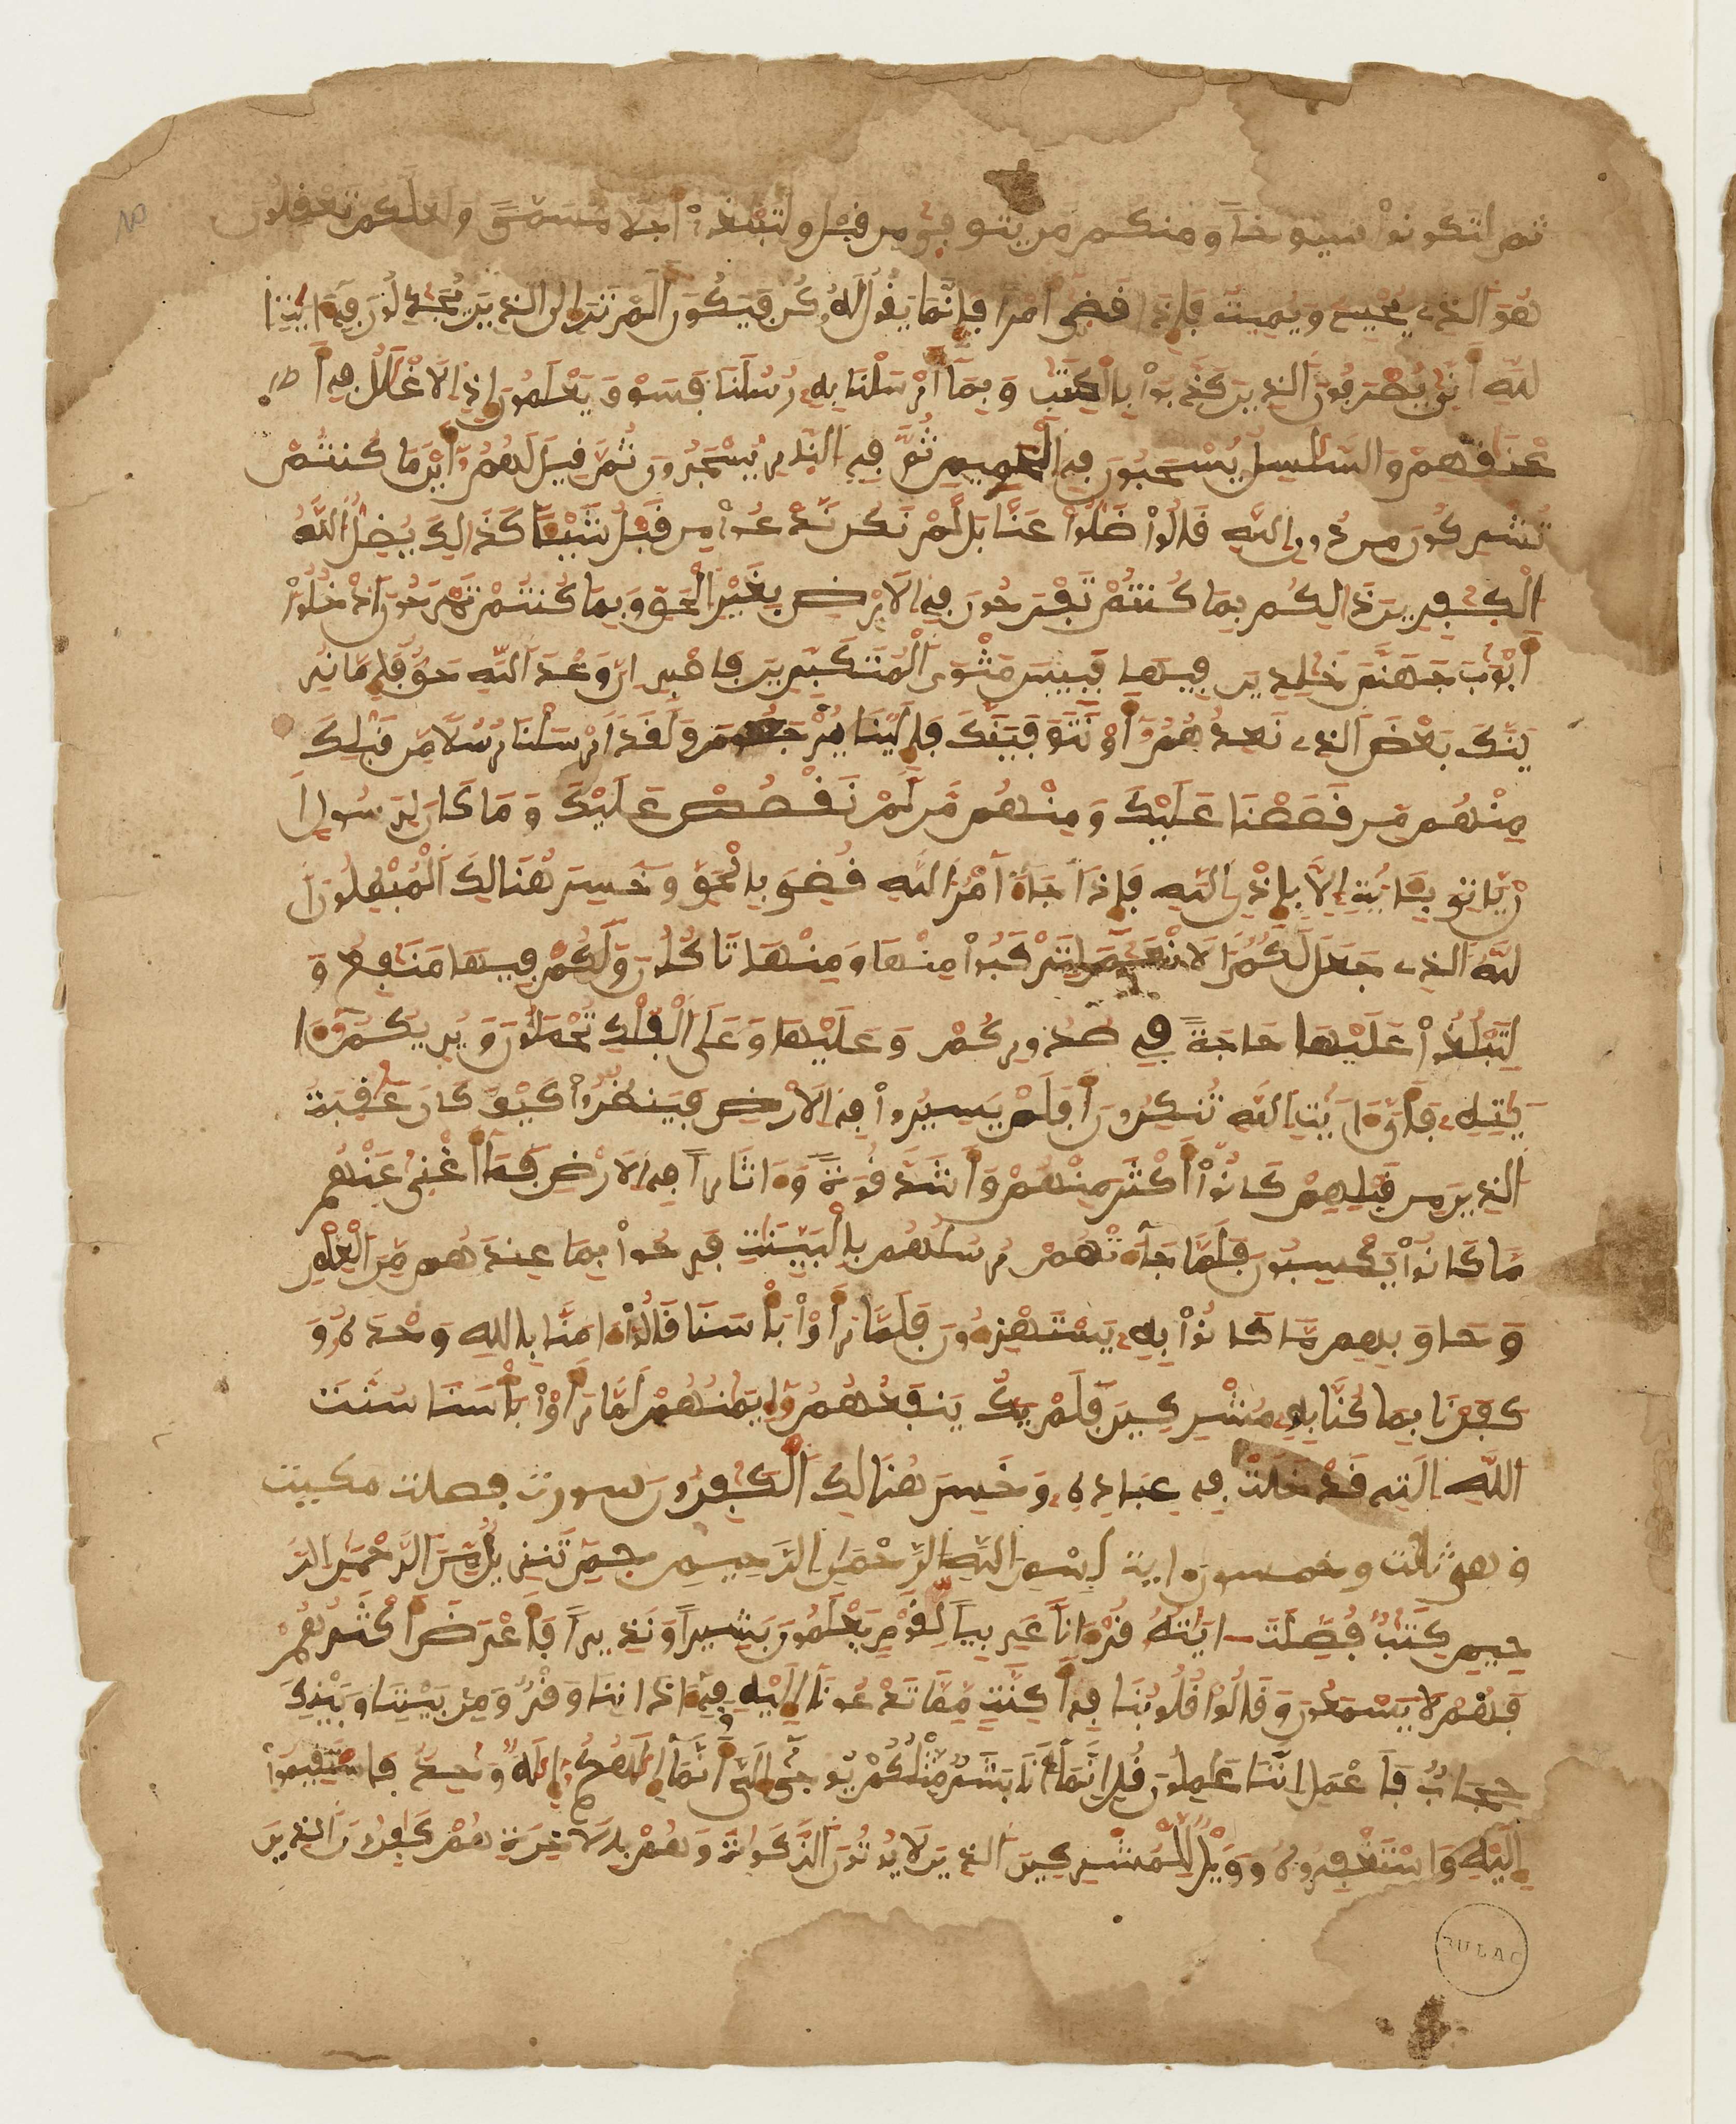 ثم لتكونوا شيوخا ومنكم من يتوفى من قبل ولتبلغوا أجلا مسمى ولعلكم تعقلون
هُوَ الذِے يُحْيِے وَيُمِيتُ فَإِذَا قَضٜىٰ أَمْراً فَإِنَّمَا يَقُولُ لَهُۥ كُن فَيَكُونُ أَلَمْ تَرَ إِلَى الذِينَ يُجَٰدِلُونَ فِےٓ ءَايَٰتِ ا
للَّهِ أَنّٜىٰ يُصْرَفُونَ الذِينَ كَذَّبُواْ بِالْكِتَٰبِ وَبِمَآ أَرْسَلْنَا بِهِۦ رُسُلَنَا فَسَوْفَ يَعْلَمُونَ إِذِ الَاغْلَٰلُ فِےٓ أَ
عْنَٰقِهِمْ وَالسَّلَٰسِلُ يُسْحَبُونَ فِے الْحَمِيمِ ثُمَّ فِے النّ۪ارِ يُسْجَرُونَ ثُمَّ قِيلَ لَهُمُۥٓ أَيْنَ مَا كُنتُمْ
تُشْرِكُونَ مِن دُونِ اللَّهِ قَالُواْ ضَلُّواْ عَنَّا بَل لَّمْ نَكُن نَّدْعُواْ مِن قَبْلُ شَيْـٔاً كَذَٰلِكَ يُضِلُّ اللَّهُ
الْكٰ۪فِرِينَ ذَٰلِكُم بِمَا كُنتُمْ تَفْرَحُونَ فِے الَارْضِ بِغَيْرِ الْحَقِّ وَبِمَا كُنتُمْ تَمْرَحُونَ ادْخُلُواْ
أَبْوَٰبَ جَهَنَّمَ خَٰلِدِينَ فِيهَا فَبِيسَ مَثْوَى الْمُتَكَبِّرِينَ فَاصْبِرِ انَّ وَعْدَ اللَّهِ حَقٌّ فَإِمَّا نُرِ
يَنَّكَ بَعْضَ الذِے نَعِدُهُمُۥٓ أَوْ نَتَوَفَّيَنَّكَ فَإِلَيْنَا يُرْجَعُونَ وَلَقَدَ اَرْسَلْنَا رُسُلاً مِّن قَبْلِكَ
مِنْهُم مَّن قَصَصْنَا عَلَيْكَ وَمِنْهُم مَّن لَّمْ نَقْصُصْ عَلَيْكَ وَمَا كَانَ لِرَسُولٍ اَ
نْ يَّاتِىَ بِـَٔايَةٍ اِلاَّ بِإِذْنِ اللَّهِ فَإِذَا جَآءَ امْرُ اللَّهِ قُضِىَ بِالْحَقِّ وَخَسِرَ هُنَالِكَ الْمُبْطِلُونَ ا
للَّهُ الذِے جَعَلَ لَكُمُ الَانْعَٰمَ لِتَرْكَبُواْ مِنْهَا وَمِنْهَا تَاكُلُونَ وَلَكُمْ فِيهَا مَنَٰفِعُ وَ
لِتَبْلُغُواْ عَلَيْهَا حَاجَةً فِے صُدُورِكُمْ وَعَلَيْهَا وَعَلَى الْفُلْكِ تُحْمَلُونَ وَيُرِيكُمُۥٓ ءَا
يَٰتِهِۦ فَأَىَّ ءَايَٰتِ اللَّهِ تُنكِرُونَ أَفَلَمْ يَسِيرُواْ فِے الَارْضِ فَيَنظُرُواْ كَيْفَ كَانَ عَٰقِبَةُ
الذِينَ مِن قَبْلِهِمْ كَانُوٓاْ أَكْثَرَ مِنْهُمْ وَأَشَدَّ قُوَّةً وَءَاثَاراً فِے الَارْضِ فَمَآ أَغْنٜىٰ عَنْهُم
مَّا كَانُواْ يَكْسِبُونَ فَلَمَّا جَآءَتْهُمْ رُسُلُهُم بِالْبَيِّنَٰتِ فَرِحُواْ بِمَا عِندَهُم مِّنَ الْعِلْمِ
وَحَاقَ بِهِم مَّا كَانُواْ بِهِۦ يَسْتَهْزِءُونَ فَلَمَّا رَأَوْاْ بَأْسَنَا قَالُوٓاْ ءَامَنَّا بِاللَّهِ وَحْدَهُۥ وَ
كَفَرْنَا بِمَا كُنَّا بِهِۦ مُشْرِكِينَ فَلَمْ يَكُ يَنفَعُهُمُۥٓ إِيمَٰنُهُمْ لَمَّا رَأَوْاْ بَأْسَنَا سُنَّتَ
اللَّهِ الَتِے قَدْ خَلَتْ فِے عِبَادِهِۦ وَخَسِرَ هُنَالِكَ الْكَٰفِرُونَ سورت فصلت مكيت
وهى ثلث وخمسون اية بِسْمِ اللَّهِ الرَّحْمَٰنِ الرَّحِيمِ حِمٓ تَنزِيلٌ مِّنَ الرَّحْمَٰنِ الرَّ
حِيمِ كِتَٰبٌ فُصِّلَتَ ايَٰتُهُۥ قُرْءَاناً عَرَبِيّاً لِّقَوْمٍ يَعْلَمُونَ بَشِيراً وَنَذِيراً فَأَعْرَضَ أَكْثَرُهُمْ
فَهُمْ لاَ يَسْمَعُونَ وَقَالُواْ قُلُوبُنَا فِےٓ أَكِنَّةٍ مِّمَّا تَدْعُونَآ إِلَيْهِ وَفِےٓ ءَاذَانِنَا وَقْرٌ وَمِنۢ بَيْنِنَا وَبَيْنِكَ
حِجَابٌ فَاعْمَلِ اِنَّنَا عَٰمِلُونَ قُلِ اِنَّمَآ أَنَا بَشَرٌ مِّثْلُكُمْ يُوحٜىٰٓ إِلَىَّ أَنَّمَآ إِلَٰهُكُمُۥٓ إِلَٰهٌ وَٰحِدٌ فَاسْتَقِيمُوٓاْ
إِلَيْهِ وَاسْتَغْفِرُوهُ وَوَيْلٌ لِّلْمُشْرِكِينَ الذِينَ لاَ يُوتُونَ الزَّكَوٰةَ وَهُم بِالَاخِرَةِ هُمْ كَٰفِرُونَ الذِينَ
BULAC